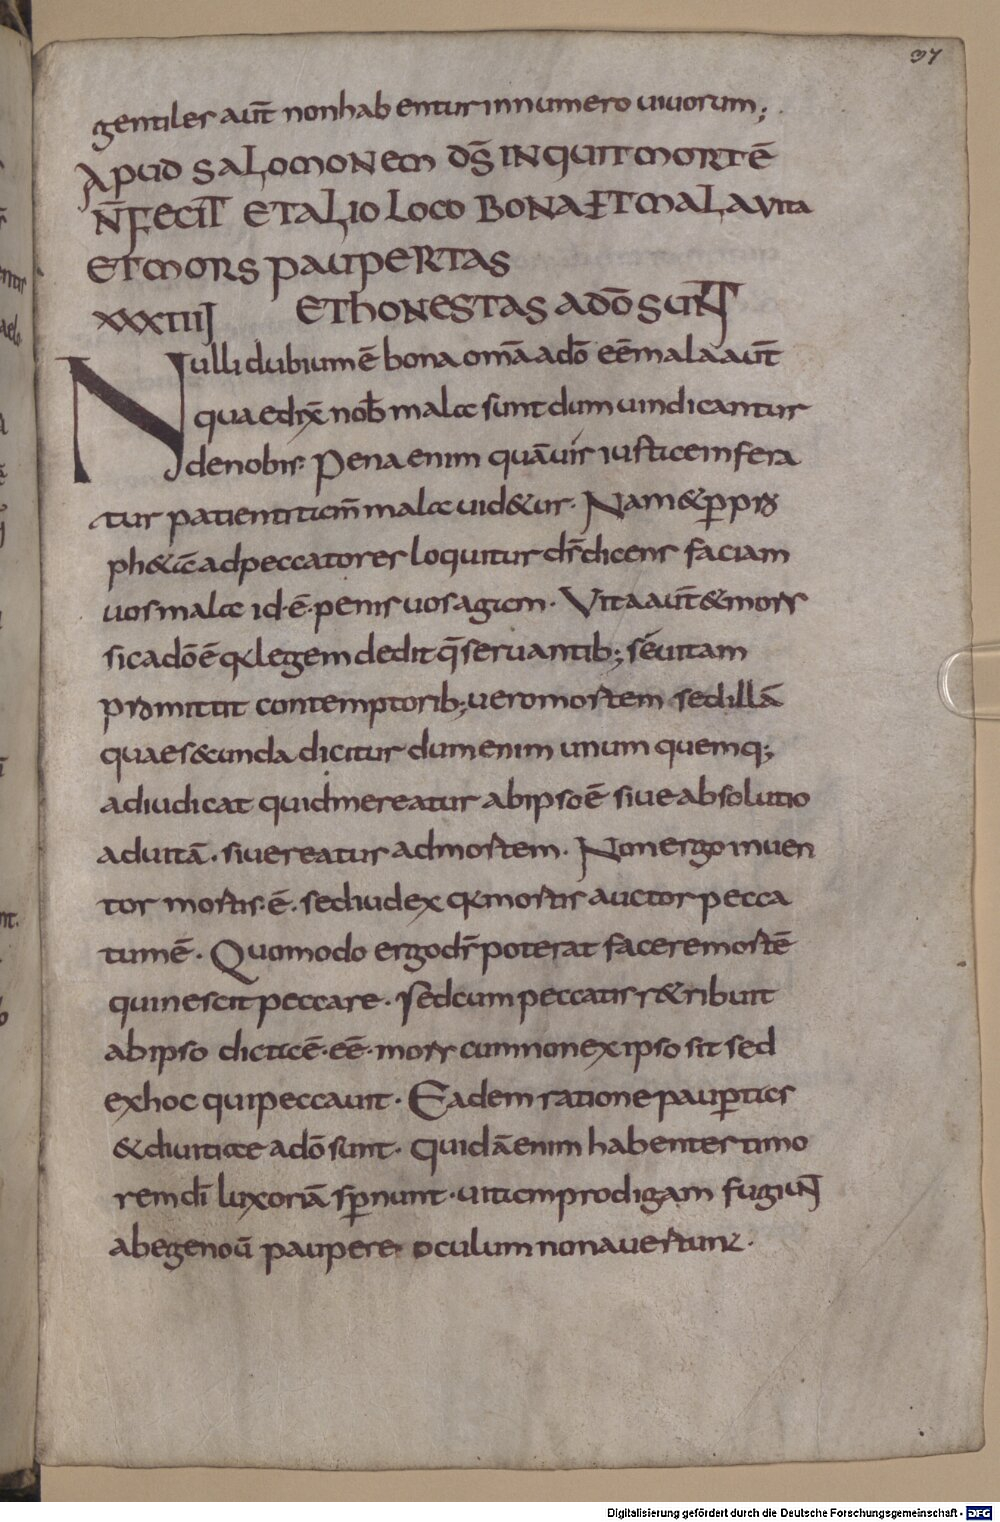 37
gentiles aut̄ non habentur in numero uiuorum;
APUD SALOMONEM DS̄ INQUIT MORTĒ
N̄ FECIT ET ALIO LOCO BONA ET MALA VITA
ET MORS PAUPERTAS
XXXIIIJ ET HONESTAS A DŌ SUNT
Nulli dubium ē bona om̄a a dō eē mala aut̄
quae dix̄ nob̄ mala sunt dum uindicantur
de nobis. Pena enim quāuis iuste infera
tur patienti tam̄ mala uid&ur. Nam & ꝑ pro
ph&ā ad peccatores loquitur ds̄ dicens faciam
uos mala id.ē. penis uos agam. Vita aut̄ & mors
sic a dō ē q legem dedit q̄ seruantib; sé uitam
promittit contemptorib; uero mortem sed illā
quae secunda dicitur dum enim unum quemq;
adiudicat quid mereatur ab ipso ē siue absolutio
ad uitā. siue reatur ad mortem. Non ergo inuen
tor mortis.ē. sed iudex q mortis auctor pecca
tum ē. Quomodo ergo ds̄ poterat facere mortē
qui nescit peccare. Sed cum peccatis r&ribuit
ab ipso dictā ē. eē. mors cum non ex ipso sit sed
ex hoc qui peccauit. Eadem ratione pauꝑtas
& diuitiae a dō sunt. Quidā enim habentes timo
rem dī luxoriā sꝑnunt. uitam prodigam fugiunt
ab egenoū paupere oculum non auertunt.
Digitalisierung gefördert durch die Deutsche Forschungsgemeinschaft - DFG